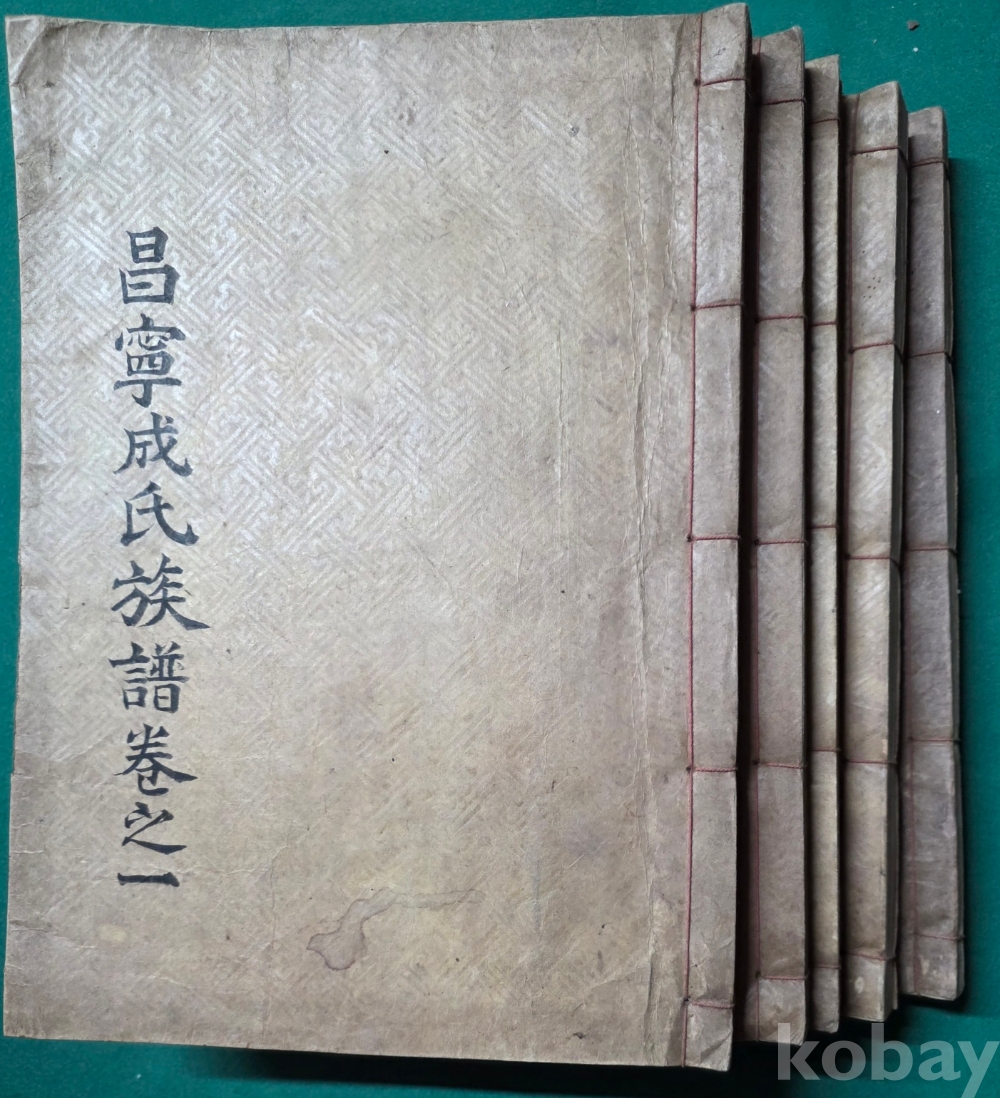 昌寧成氏族譜卷之一
kobay